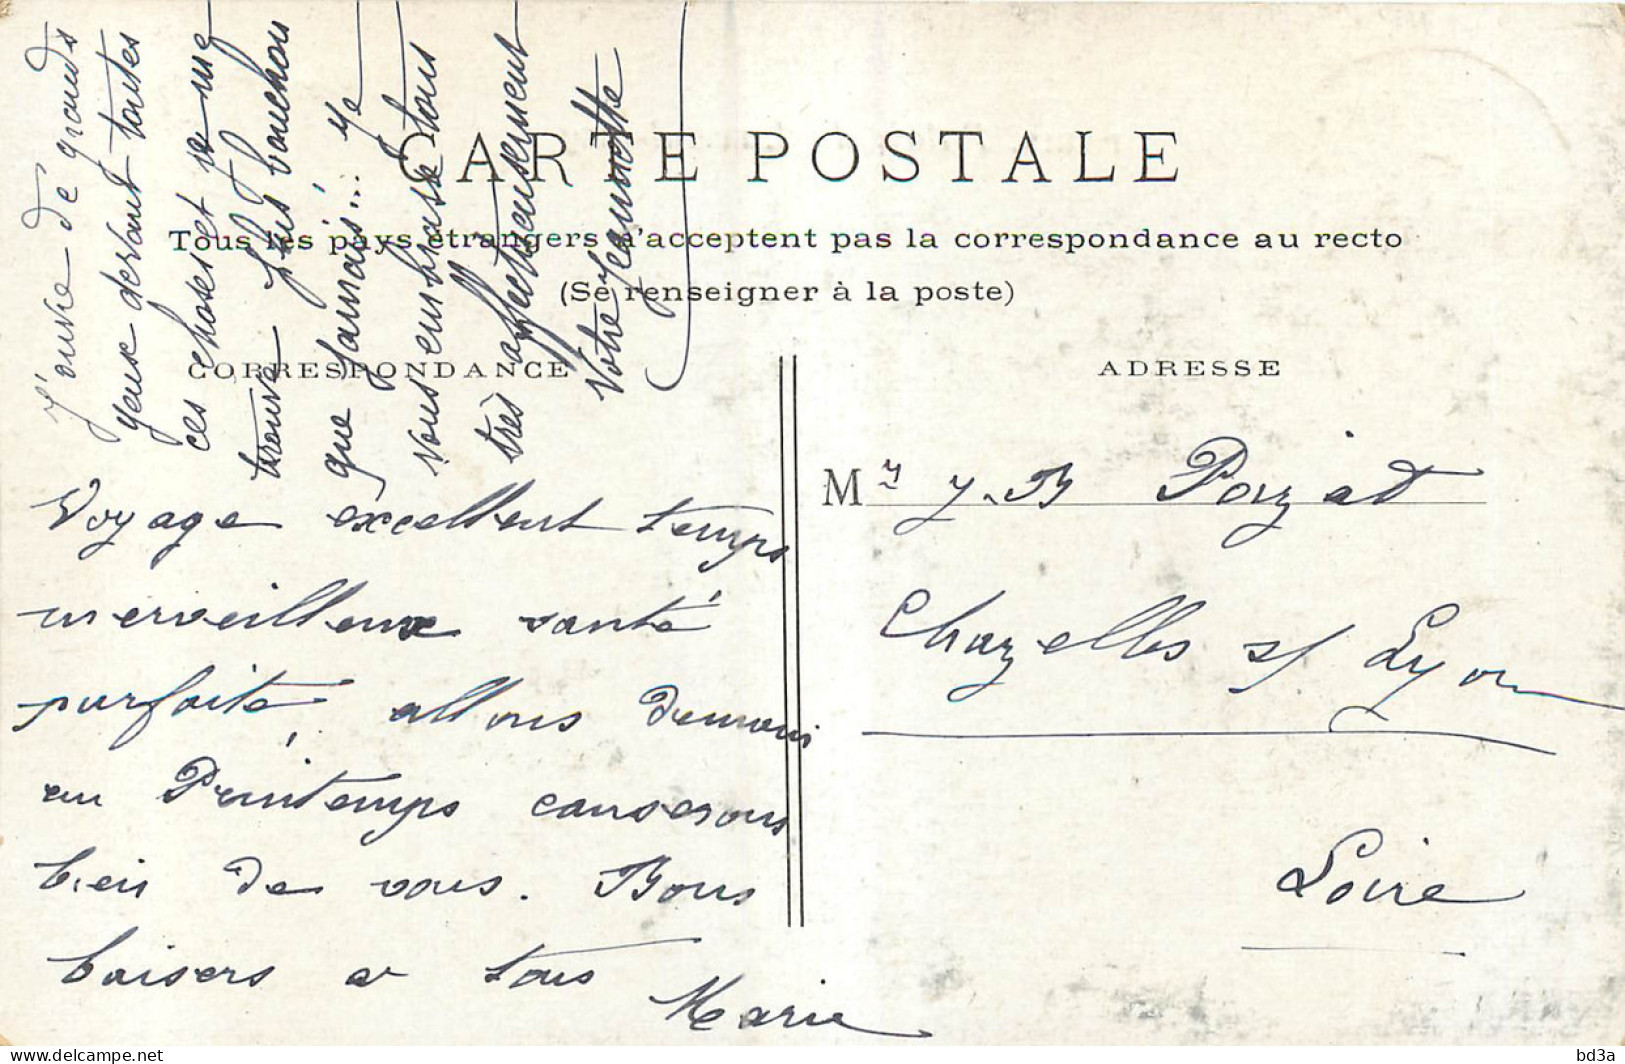 J'ouvre de grands
yeux devant toutes
ces choses et je me
trouve plus bouchon
que jamais... Je
vous embrasse tous
très affectueusement
Votre Jeannette
CARTE POSTALE
Tous les pays étrangers n'acceptent pas la correspondance au recto
(Se renseigner à la poste)
CORRESPONDANCE
Voyage excellent temps
merveilleux santé
parfaite, allons demain
au Printemps causerons
bien de vous. Bons
baisers a tous
Marie
ADRESSE
Mr J.B Poyzat
Chazelles s/ Lyon
Loire
bd3a